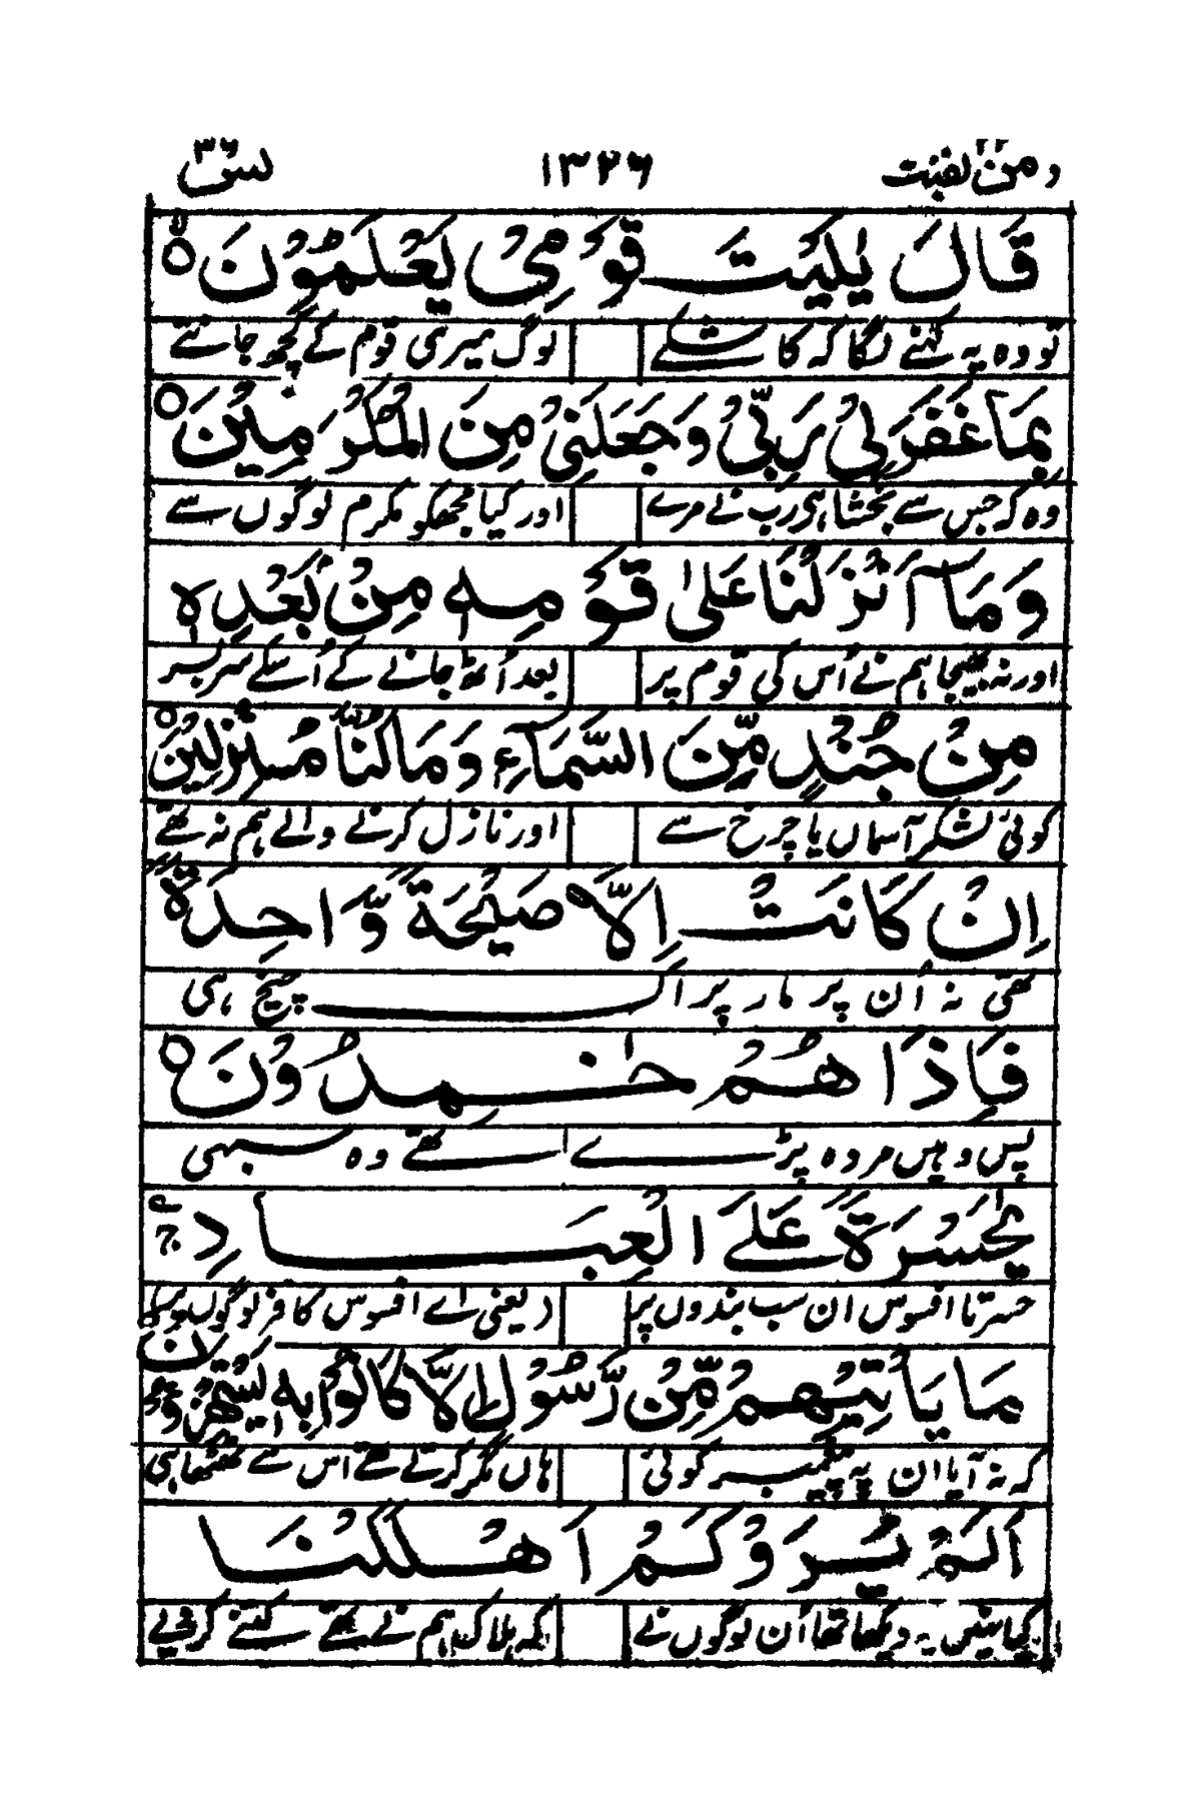 ومن یقنت ۲۲ ۱۳۲۶ یٰس ۳۶
قَالَ یٰلَیْتَ قَوْمِیْ یَعْلَمُوْنَ ۝
تو وہ یہ کہنے لگا کہ کاشکے لوگ میری قوم کے کچھ جانتے
بِمَا غَفَرَ لِیْ رَبِّیْ وَجَعَلَنِیْ مِنَ الْمُكْرَمِیْنَ ۝
وہ کہ جس سے بخشا ہی رب نے مرے اور کیا مجھکو مکرم لوگوں سے
وَمَاۤ اَنْزَلْنَا عَلٰی قَوْمِهٖ مِنْۢ بَعْدِهٖ
اور نہ بھیجا ہم نے اُس کی قوم پر بعد اُٹھ جانے کے اُسکے سر بسر
مِنْ جُنْدٍ مِّنَ السَّمَآءِ وَمَا كُنَّا مُنْزِلِیْنَ ۝
کوئی لشکر آسماں یا چرخ سے اور نازل کرنے والے ہم نہ تھے
اِنْ كَانَتْ اِلَّا صَیْحَةً وَّاحِدَةً
تھی نہ اُن پر مار پر اک چیخ ہی
فَاِذَا هُمْ خٰمِدُوْنَ ۝
پس وہیں مردہ پڑے تھے وہ سبھی
یٰحَسْرَةً عَلَی الْعِبَادِ ۚ
حسرتا افسوس ان سب بندوں پر (یعنی اے افسوس کافر لوگوں پر
مَا یَاْتِیْهِمْ مِّنْ رَّسُوْلٍ اِلَّا كَانُوْا بِهٖ یَسْتَهْزِءُوْنَ
کہ نہ آیا ان پہ پیغمبر کوئی ہاں مگر کرتے تھے اس سے ٹھٹھا ہی
اَلَمْ یَرَوْا كَمْ اَهْلَكْنَا
کیا نہیں یہ دیکھا تھا اُن لوگوں نے کہ ہلاک ہم نے تھے کتنے کر دئیے